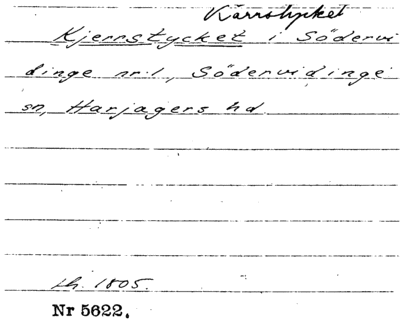 Kärrstycket
Kjernstycket i Södervi
dinge nr 1, Södervidinge
sn, Harjagers hd
lh. 1805.
Nr 5622.